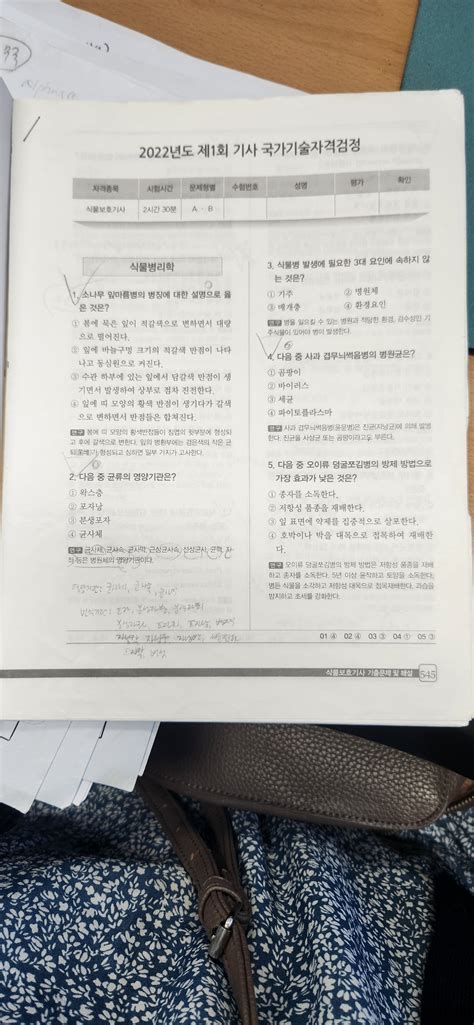 2022년도 제1회 기사 국가기술자격검정
자격종목 시험시간 문제형별 수험번호 성명 평가 확인
식물보호기사 2시간 30분 A · B
식물병리학
1. 소나무 잎마름병의 병징에 대한 설명으로 옳
은 것은?
① 봄에 묵은 잎이 적갈색으로 변하면서 대량
으로 떨어진다.
② 잎에 바늘구멍 크기의 적갈색 반점이 나타
나고 동심원으로 커진다.
③ 수관 하부에 있는 잎에서 담갈색 반점이 생
기면서 발생하여 상부로 점차 진전한다.
④ 잎에 띠 모양의 황색 반점이 생기다가 갈색
으로 변하면서 반점들은 합쳐진다.
연구 봄에 띠 모양의 황색반점들이 침엽의 윗부분에 형성되
고 후에 갈색으로 변한다. 잎의 병환부에는 검은색의 작은 균
이 형성되고 심하면 일부 가지가 고사한다.
2. 다음 중 균류의 영양기관은?
① 왁스층
② 포자낭
③ 분생포자
④ 균사체
연구 균사체, 균사속, 균사막, 근상균사속, 선상균사, 균핵, 자
좌 등은 병원체의 영양기관이다.
3. 식물병 발생에 필요한 3대 요인에 속하지 않
는 것은?
① 기주 ② 병원체
③ 매개충 ④ 환경요인
연구 병을 일으킬 수 있는 병원과 적당한 환경, 감수성인 기
주식물이 있어야 병이 발생한다.
4. 다음 중 사과 겹무늬썩음병의 병원균은?
① 곰팡이
② 바이러스
③ 세균
④ 파이토플라스마
연구 사과 겹무늬썩음병(윤문병)은 진균(자낭균)에 의해 발생
한다. 진균을 사상균 또는 곰팡이라고도 부른다.
5. 다음 중 오이류 덩굴쪼김병의 방제 방법으로
가장 효과가 낮은 것은?
① 종자를 소독한다.
② 저항성 품종을 재배한다.
③ 잎 표면에 약제를 집중적으로 살포한다.
④ 호박이나 박을 대목으로 접목하여 재배한
다.
연구 오이류 덩굴쪼김병의 방제 방법은 저항성 품종을 재배
하고 종자를 소독한다. 5년 이상 윤작하고 토양을 소독한다.
병든 식물을 소각하고 저항성 대목으로 접목재배한다. 과습을
방지하고 초세를 강화한다.
01 ④ 02 ④ 03 ③ 04 ① 05 ③
식물보호기사 기출문제 및 해설 545